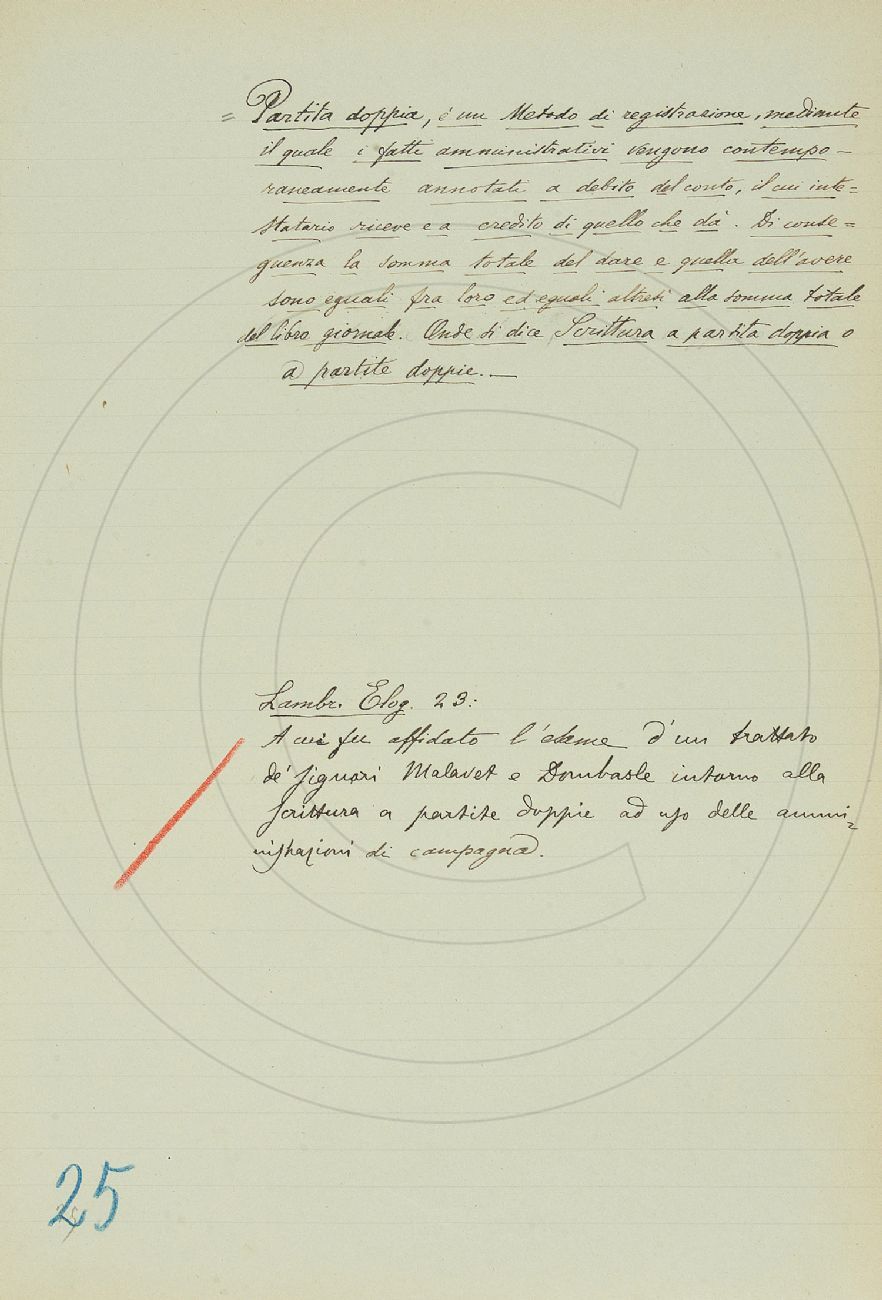 = Partita doppia, è un Metodo di registrazione, mediante
il quale i fatti amministrativi vengono contempo-
raneamente annotati a debito del conto, il cui inte=
statario riceve e a credito di quello che dà. Di conse=
guenza la somma totale del dare e quella dell'avere
sono eguali fra loro ed eguali altresì alla somma totale
del libro giornale. Onde si dice Scrittura a partita doppia o
a partite doppie. —
Lambr. Elog. 23:
A cui fu affidato l'esame d'un trattato
de' signori Malavet e Dombasle intorno alla
scrittura a partite doppie ad uso delle ammi=
nistrazioni di campagna.
25